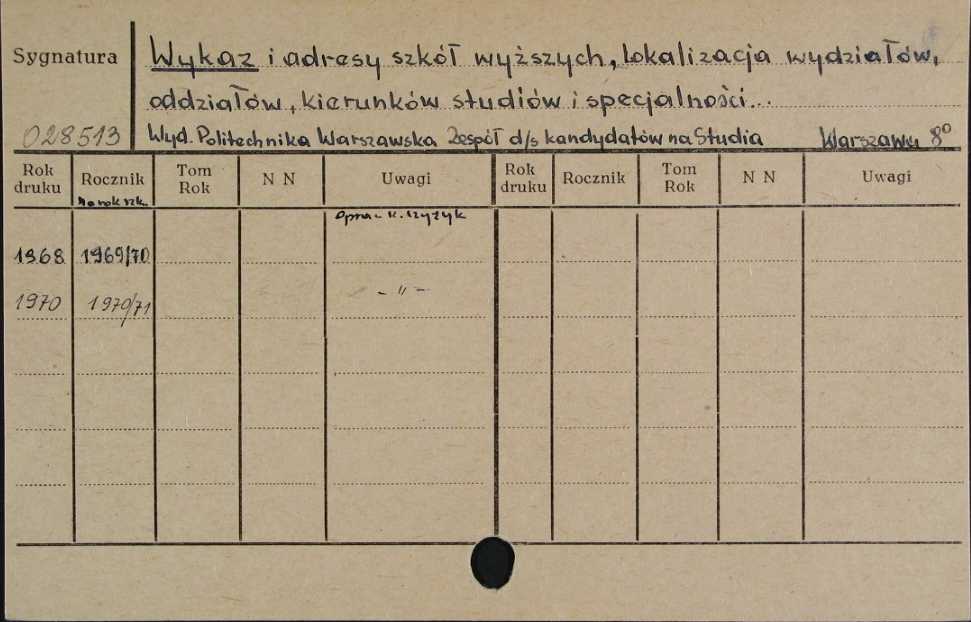 Sygnatura
Wykaz i adresy szkół wyższych, lokalizacja wydziałów,
oddziałów, kierunków studiów i specjalności...
028513
Wyd. Politechnika Warszawska Zespół d/s kandydatów na Studia Warszawa 8°
Rok druku Rocznik Tom Rok N N Uwagi Rok druku Rocznik Tom Rok N N Uwagi
Na rok szk.
Oprac. K. Czyżyk
1968 1969/70
1970 1970/71 - " -